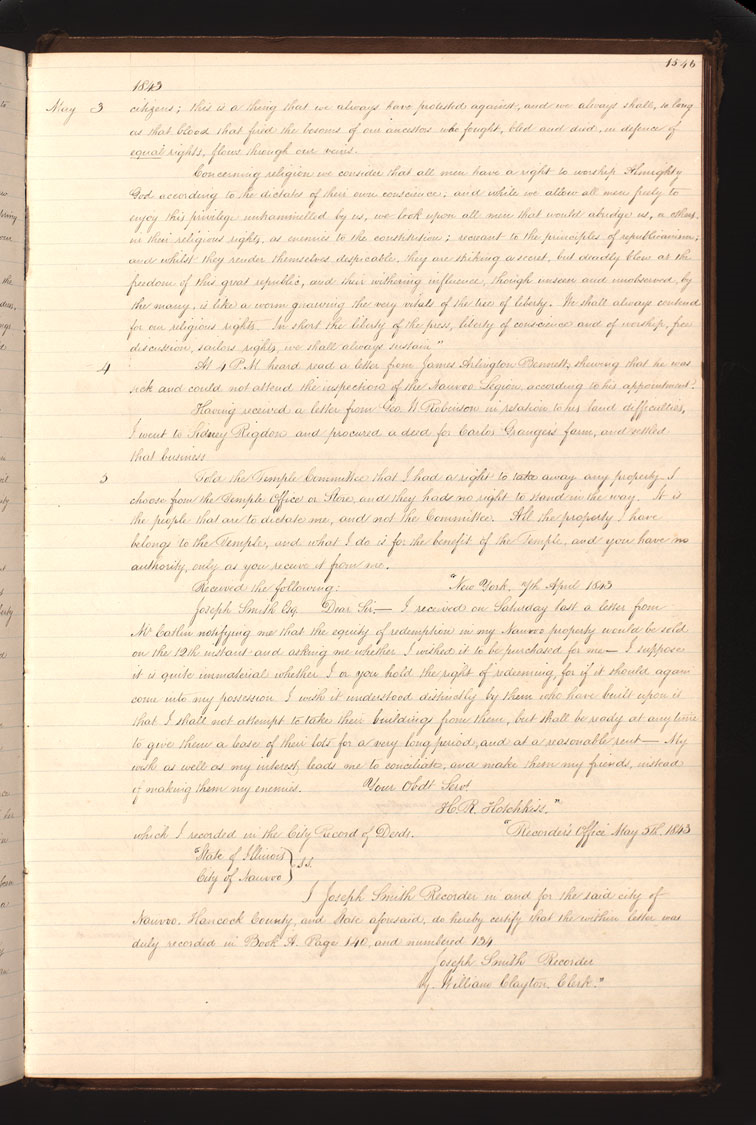 1546
1843
May 3 citizens; this is a thing that we always have protested against, and we always shall, so long
as that blood that fired the bosoms of our ancestors who fought, bled and died, in defence of
equal rights, flows through our veins.
Concerning religion we consider that all men have a right to worship Almighty
God according to the dictates of their own conscience; and while we allow all men freely to
enjoy this privilege untrammelled by us, we look upon all men that would abridge us, or others
in their religious rights, as enemies to the constitution; recreant to the principles of republicanism;
and whilst they render themselves despicable, they are striking a secret, but deadly blow at the
freedom of this great republic, and their withering influence, though unseen and unobserved by
the many, is like a worm gnawing the very vitals of the tree of liberty. We shall always contend
for our religious rights. In short the liberty of the press, liberty of conscience and of worship, free
discussion, sailors rights, we shall always sustain"
4 At 4 P.M. heard read a letter from James Arlington Bennett, shewing that he was
sick and could not attend the inspection of the Nauvoo Legion, according to his appointment.
Having received a letter from Geo. W. Robinson in relation to his land difficulties,
I went to Sidney Rigdon and procured a deed for Carlos Granger's farm, and settled
that business
5 Told the Temple Committee that I had a right to take away any property I
choose from the Temple Office or Store, and they had no right to stand in the way. It is
the people that are to dictate me, and not the Committee. All the property I have
belongs to the Temple, and what I do is for the benefit of the Temple, and you have no
authority, only as you receive it from me.
Received the following: "New York. 7th April 1843
Joseph Smith Esq. Dear Sir,— I received on Saturday last a letter from
Mr Catlin notifying me that the equity of redemption in my Nauvoo property would be sold
on the 12th instant and asking me whether I wished it to be purchased for me— I suppose
it is quite immaterial whether I or you hold the right of redeeming, for if it should again
come into my possession I wish it understood distinctly by them who have built upon it
that I shall not attempt to take their buildings from them, but shall be ready at any time
to give them a lease of their lots for a very long period, and at a reasonable rent— My
wish as well as my interest, leads me to conciliate, and make them my friends, instead
of making them my enemies. Your Obdt. Servt.
H. R. Hotchkiss."
which I recorded in the City Record of Deeds. "Recorder's Office May 5th. 1843
"State of Illinois
City of Nauvoo } S.S.
I Joseph Smith Recorder in and for the said city of
Nauvoo, Hancock County, and State aforesaid, do hereby certify that the within letter was
duly recorded in Book A. Page 140, and numbered 134
Joseph Smith Recorder
by William Clayton, Clerk."